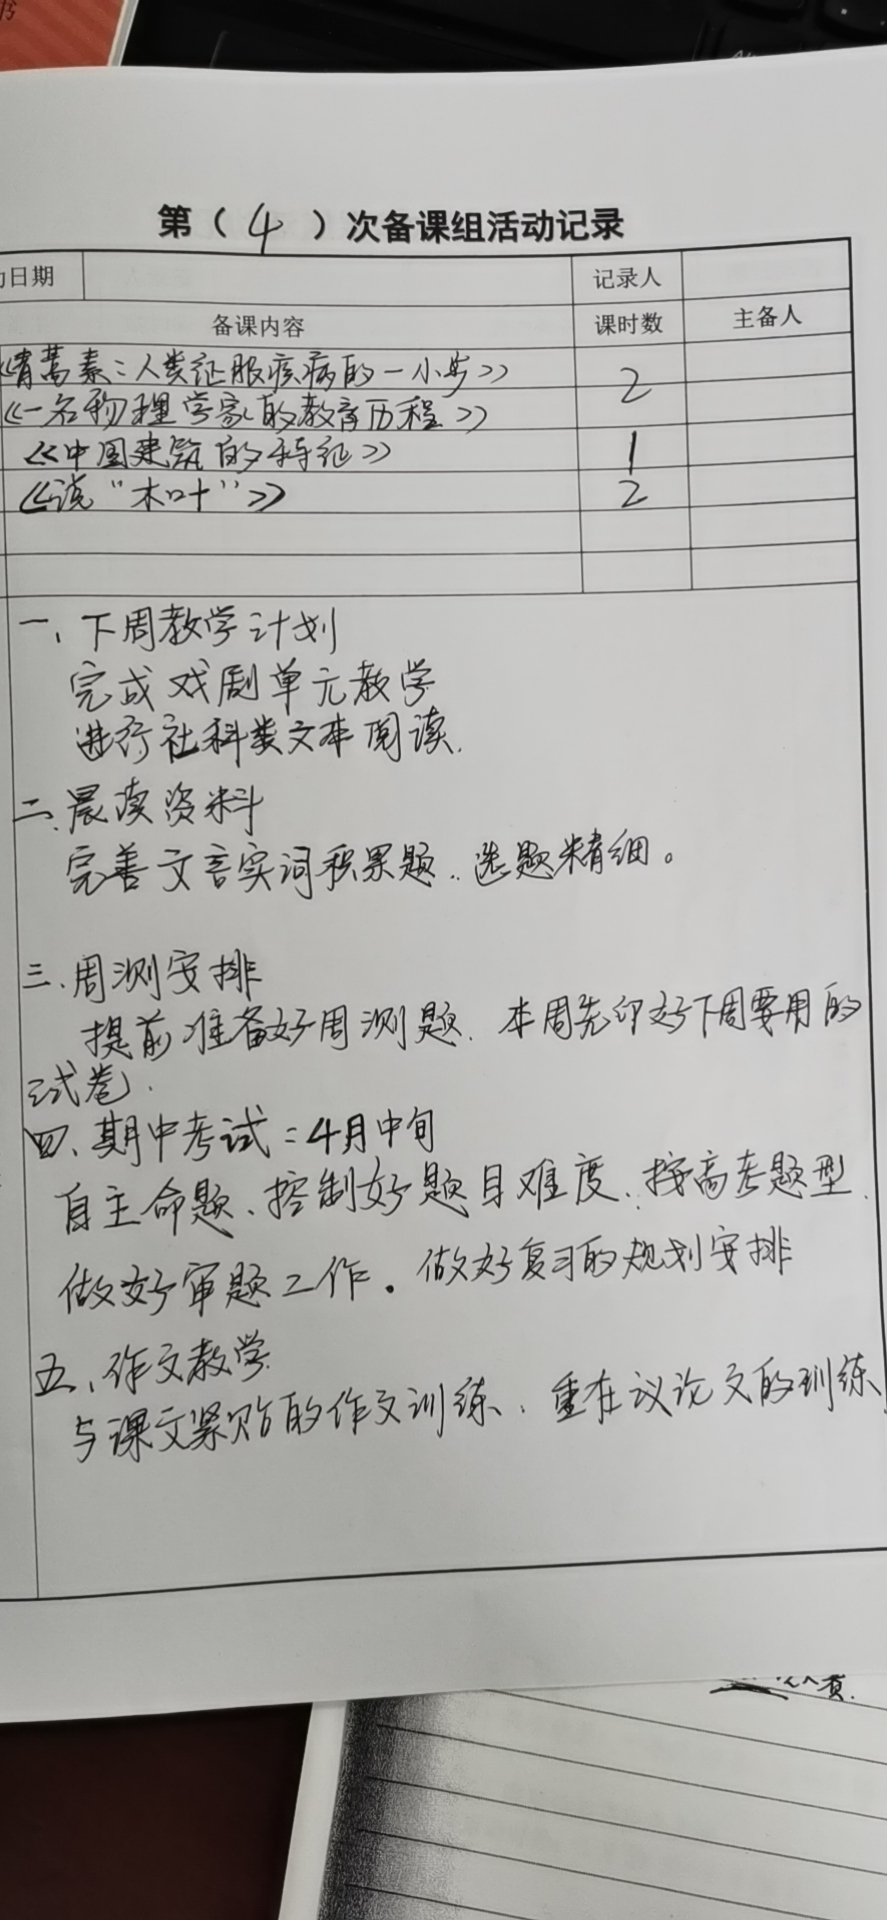 书
第（4）次备课组活动记录
动日期 记录人
备课内容 课时数 主备人
《青蒿素：人类征服疾病的一小步》 2
《一名物理学家的教育历程》
《中国建筑的特征》 1
《说“木叶”》 2
一、下周教学计划
完成戏剧单元教学
进行社科类文本阅读.
二、晨读资料
完善文言实词积累题.. 选题精细。
三、周测安排
提前准备好周测题. 本周先印好下周要用的
试卷.
四、期中考试：4月中旬
自主命题、控制好题目难度、按高考题型.
做好审题工作。做好复习的规划安排
五、作文教学
与课文紧贴的作文训练、重在议论文的训练